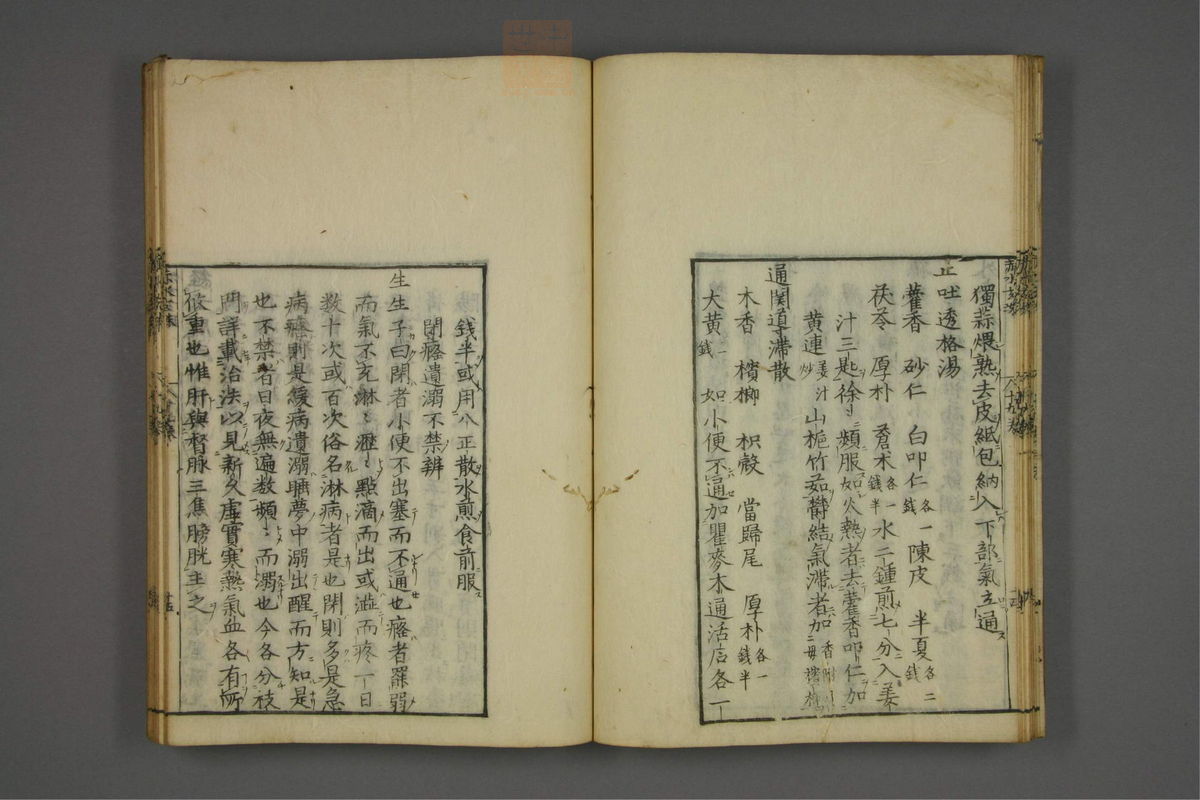 獨蒜煨熟去皮紙包納入下部氣立通
止吐透格湯
藿香 砂仁 白叩仁各一錢陳皮 半夏各二錢
茯苓 厚朴 蒼术各一錢半水二鍾煎七分入姜
汁三匙徐〻頻服如火熱者去藿香叩仁加
黄連姜汁炒山梔竹茹鬱結氣滯者加香附
通関導滯散
木香 檳榔 枳殼 當歸尾 厚朴各一錢半
大黄一錢 如小便不通加瞿麥木通活石各一
錢半或用八正散水煎食前服
閉癃遺溺不禁辨
生生子曰閉者小便不出塞而不通也癃者罷弱
而氣不充淋〻瀝〻點滴而出或澁而疼一日
数十次或百次俗名淋病者是也閉則多是急
病癃則是緩病遺溺睡夢中溺出醒而方知是
也不禁者日夜無遍数頻〻而溺也今各分枝
門詳載治法以見新久虚實寒熱氣血各有所
攸重也惟肝與督脉三焦膀胱主之